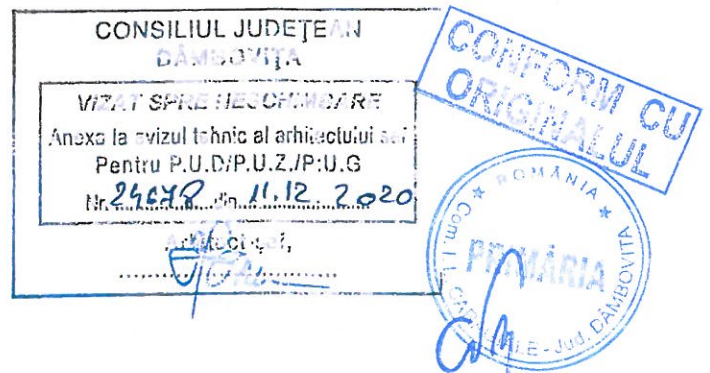 CONSILIUL JUDEȚEAN
DÂMBOVIȚA
VIZAT SPRE NESCHIMBARE
Anexa la avizul tehnic al arhitectului șef
Pentru P.U.D/P.U.Z./P.U.G
Nr. 24678 din 11.12.2020
Arhitect șef,
CONFORM CU
ORIGINALUL
ROMÂNIA
PRIMĂRIA
Com. I.L. CARAGIALE - Jud. DÂMBOVIȚA